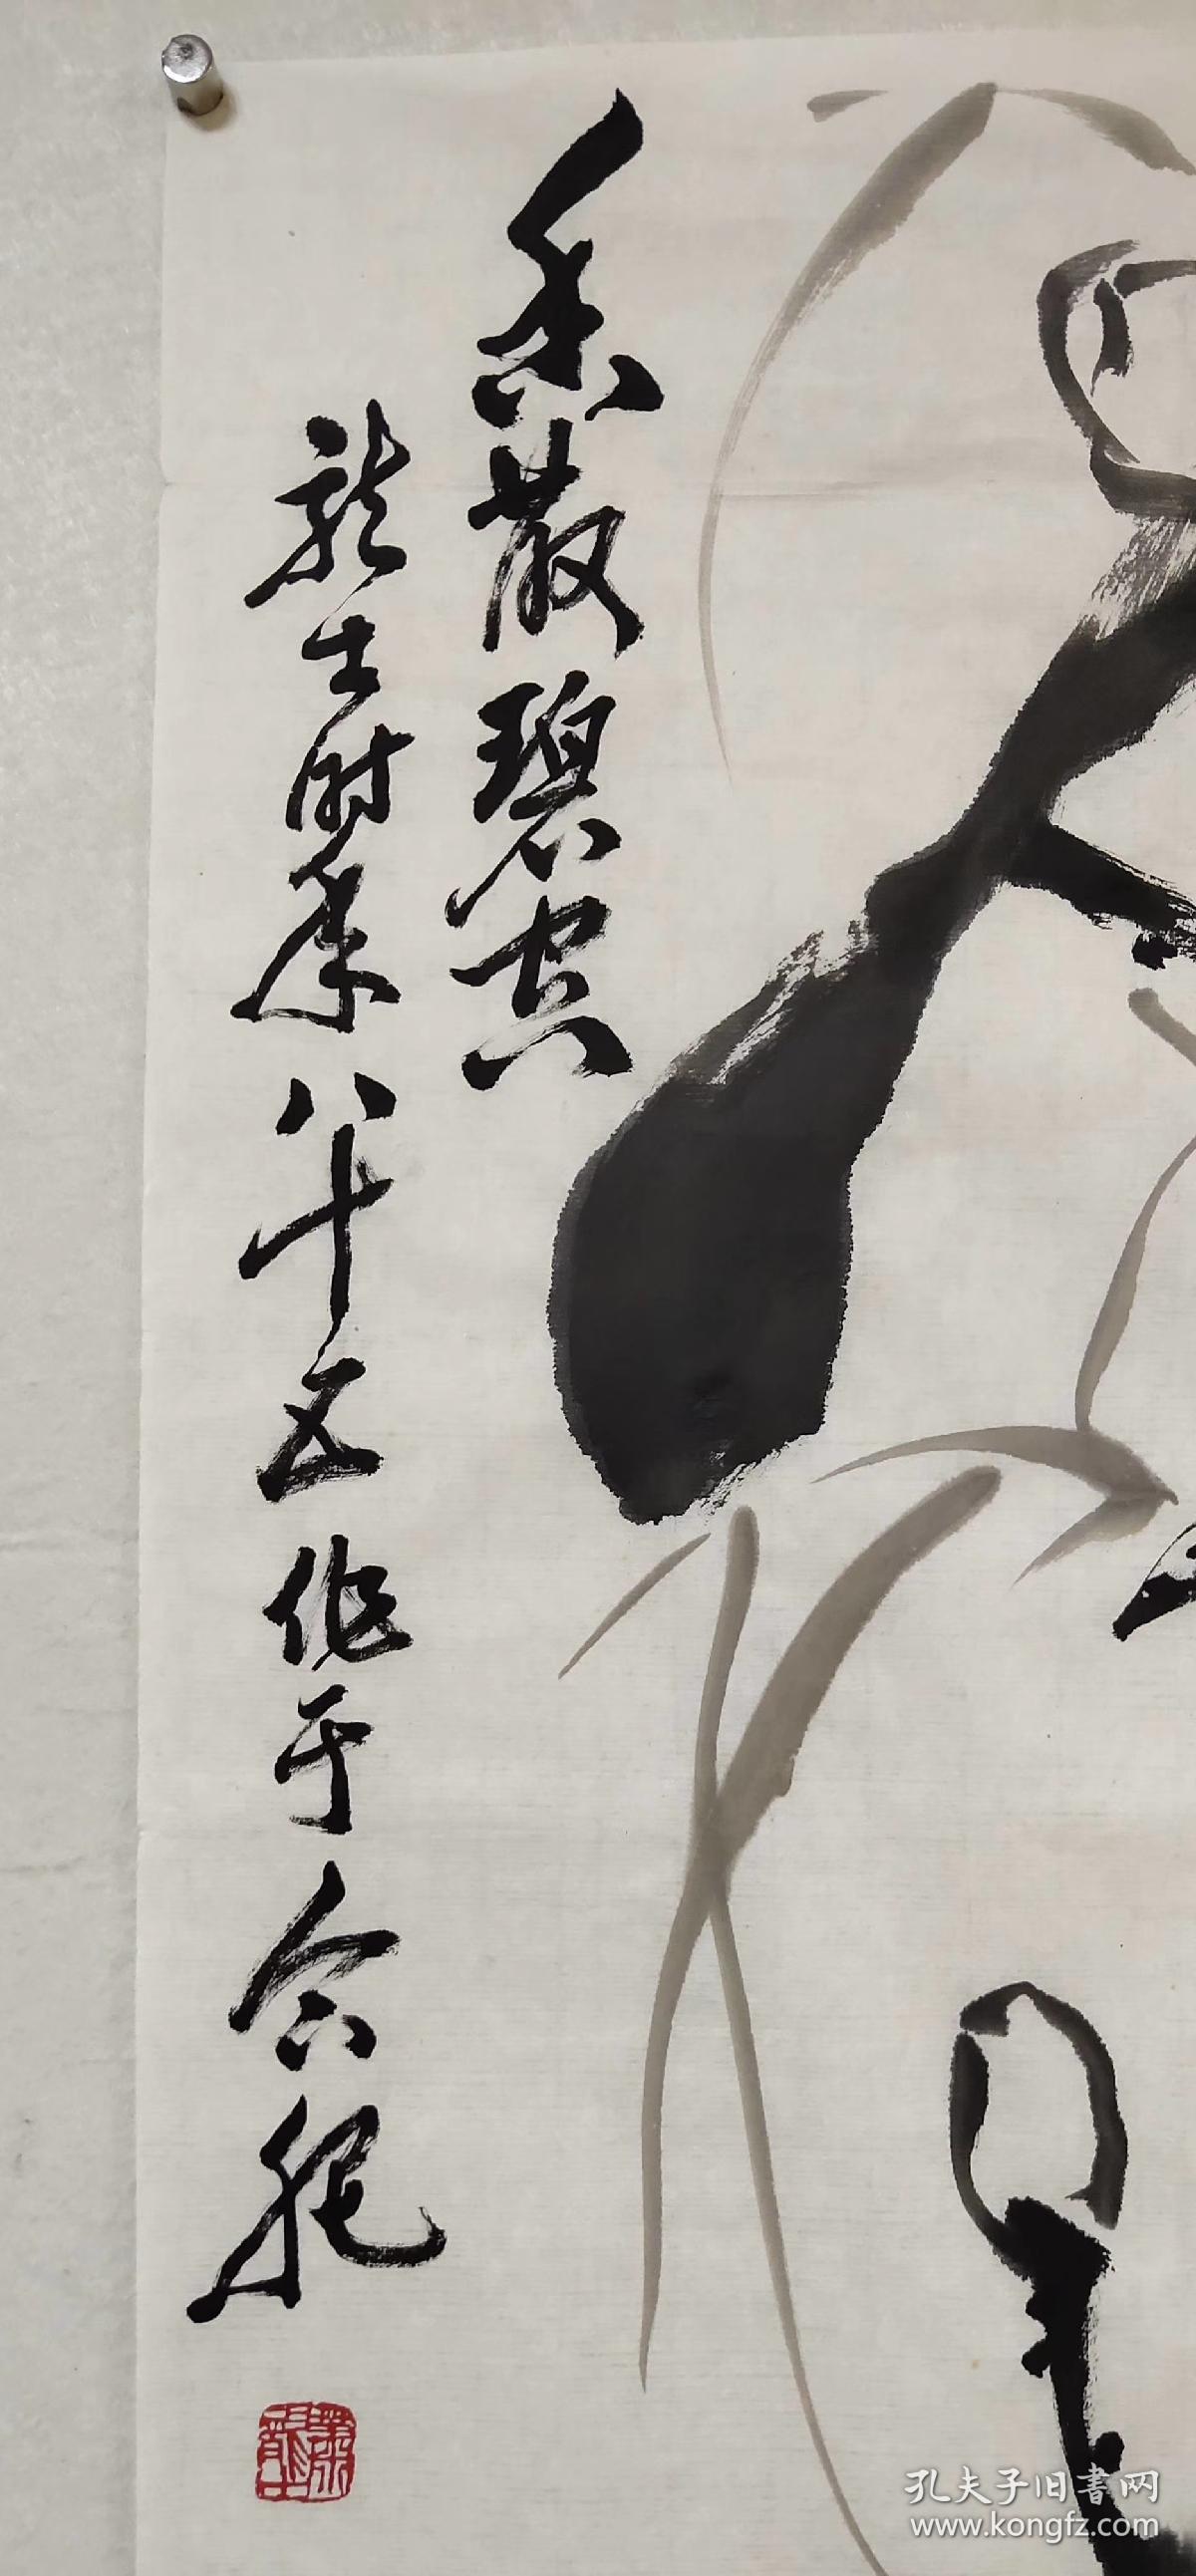 香散碧空
龙士时年八十五作于合肥
孔夫子旧書网
www.kongfz.com